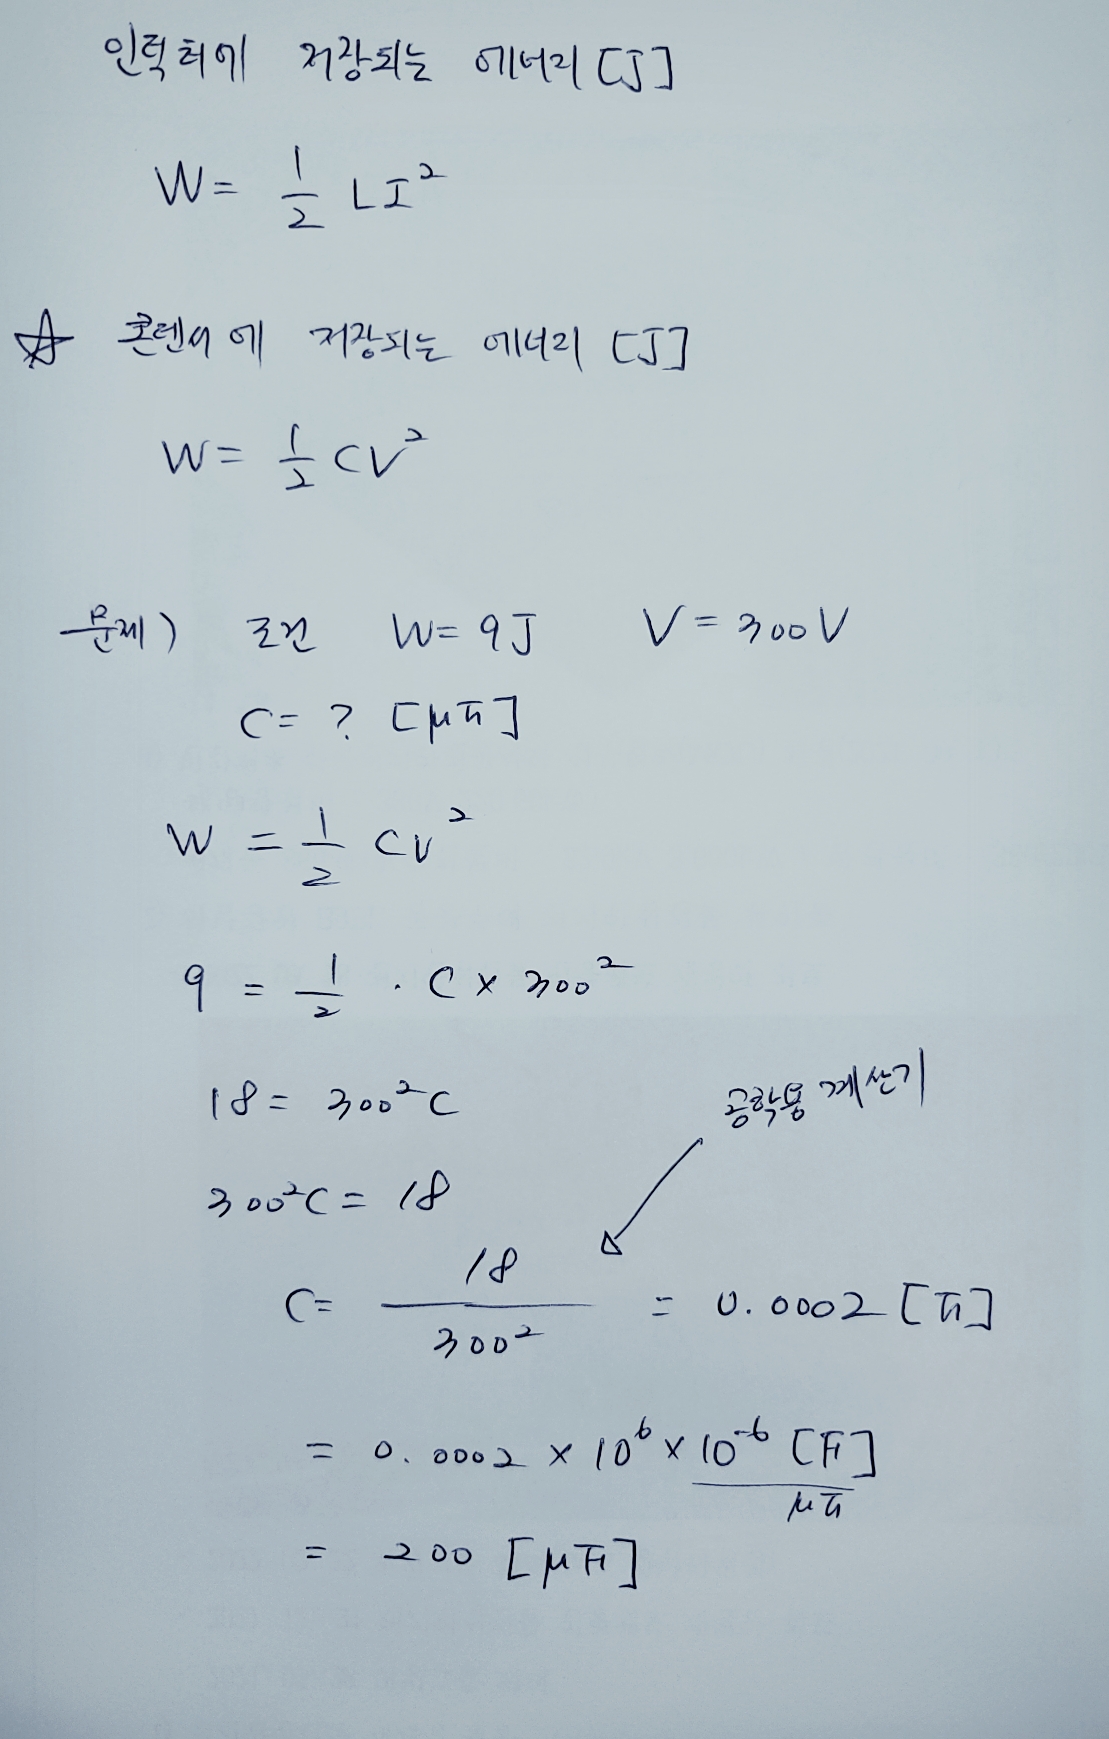 인턱터에 저장되는 에너리 [J]
W = 1/2 LI²
☆ 콘텐서에 저장되는 에너리 [J]
W = 1/2 CV²
문제) 조건 W = 9J V = 300V
C = ? [μF]
W = 1/2 CV²
9 = 1/2 · C × 300²
18 = 300²C
300²C = 18
공학용 계산기
C = 18/300² = 0.0002 [F]
= 0.0002 × 10⁶ × 10⁻⁶ [F]
μF
= 200 [μF]